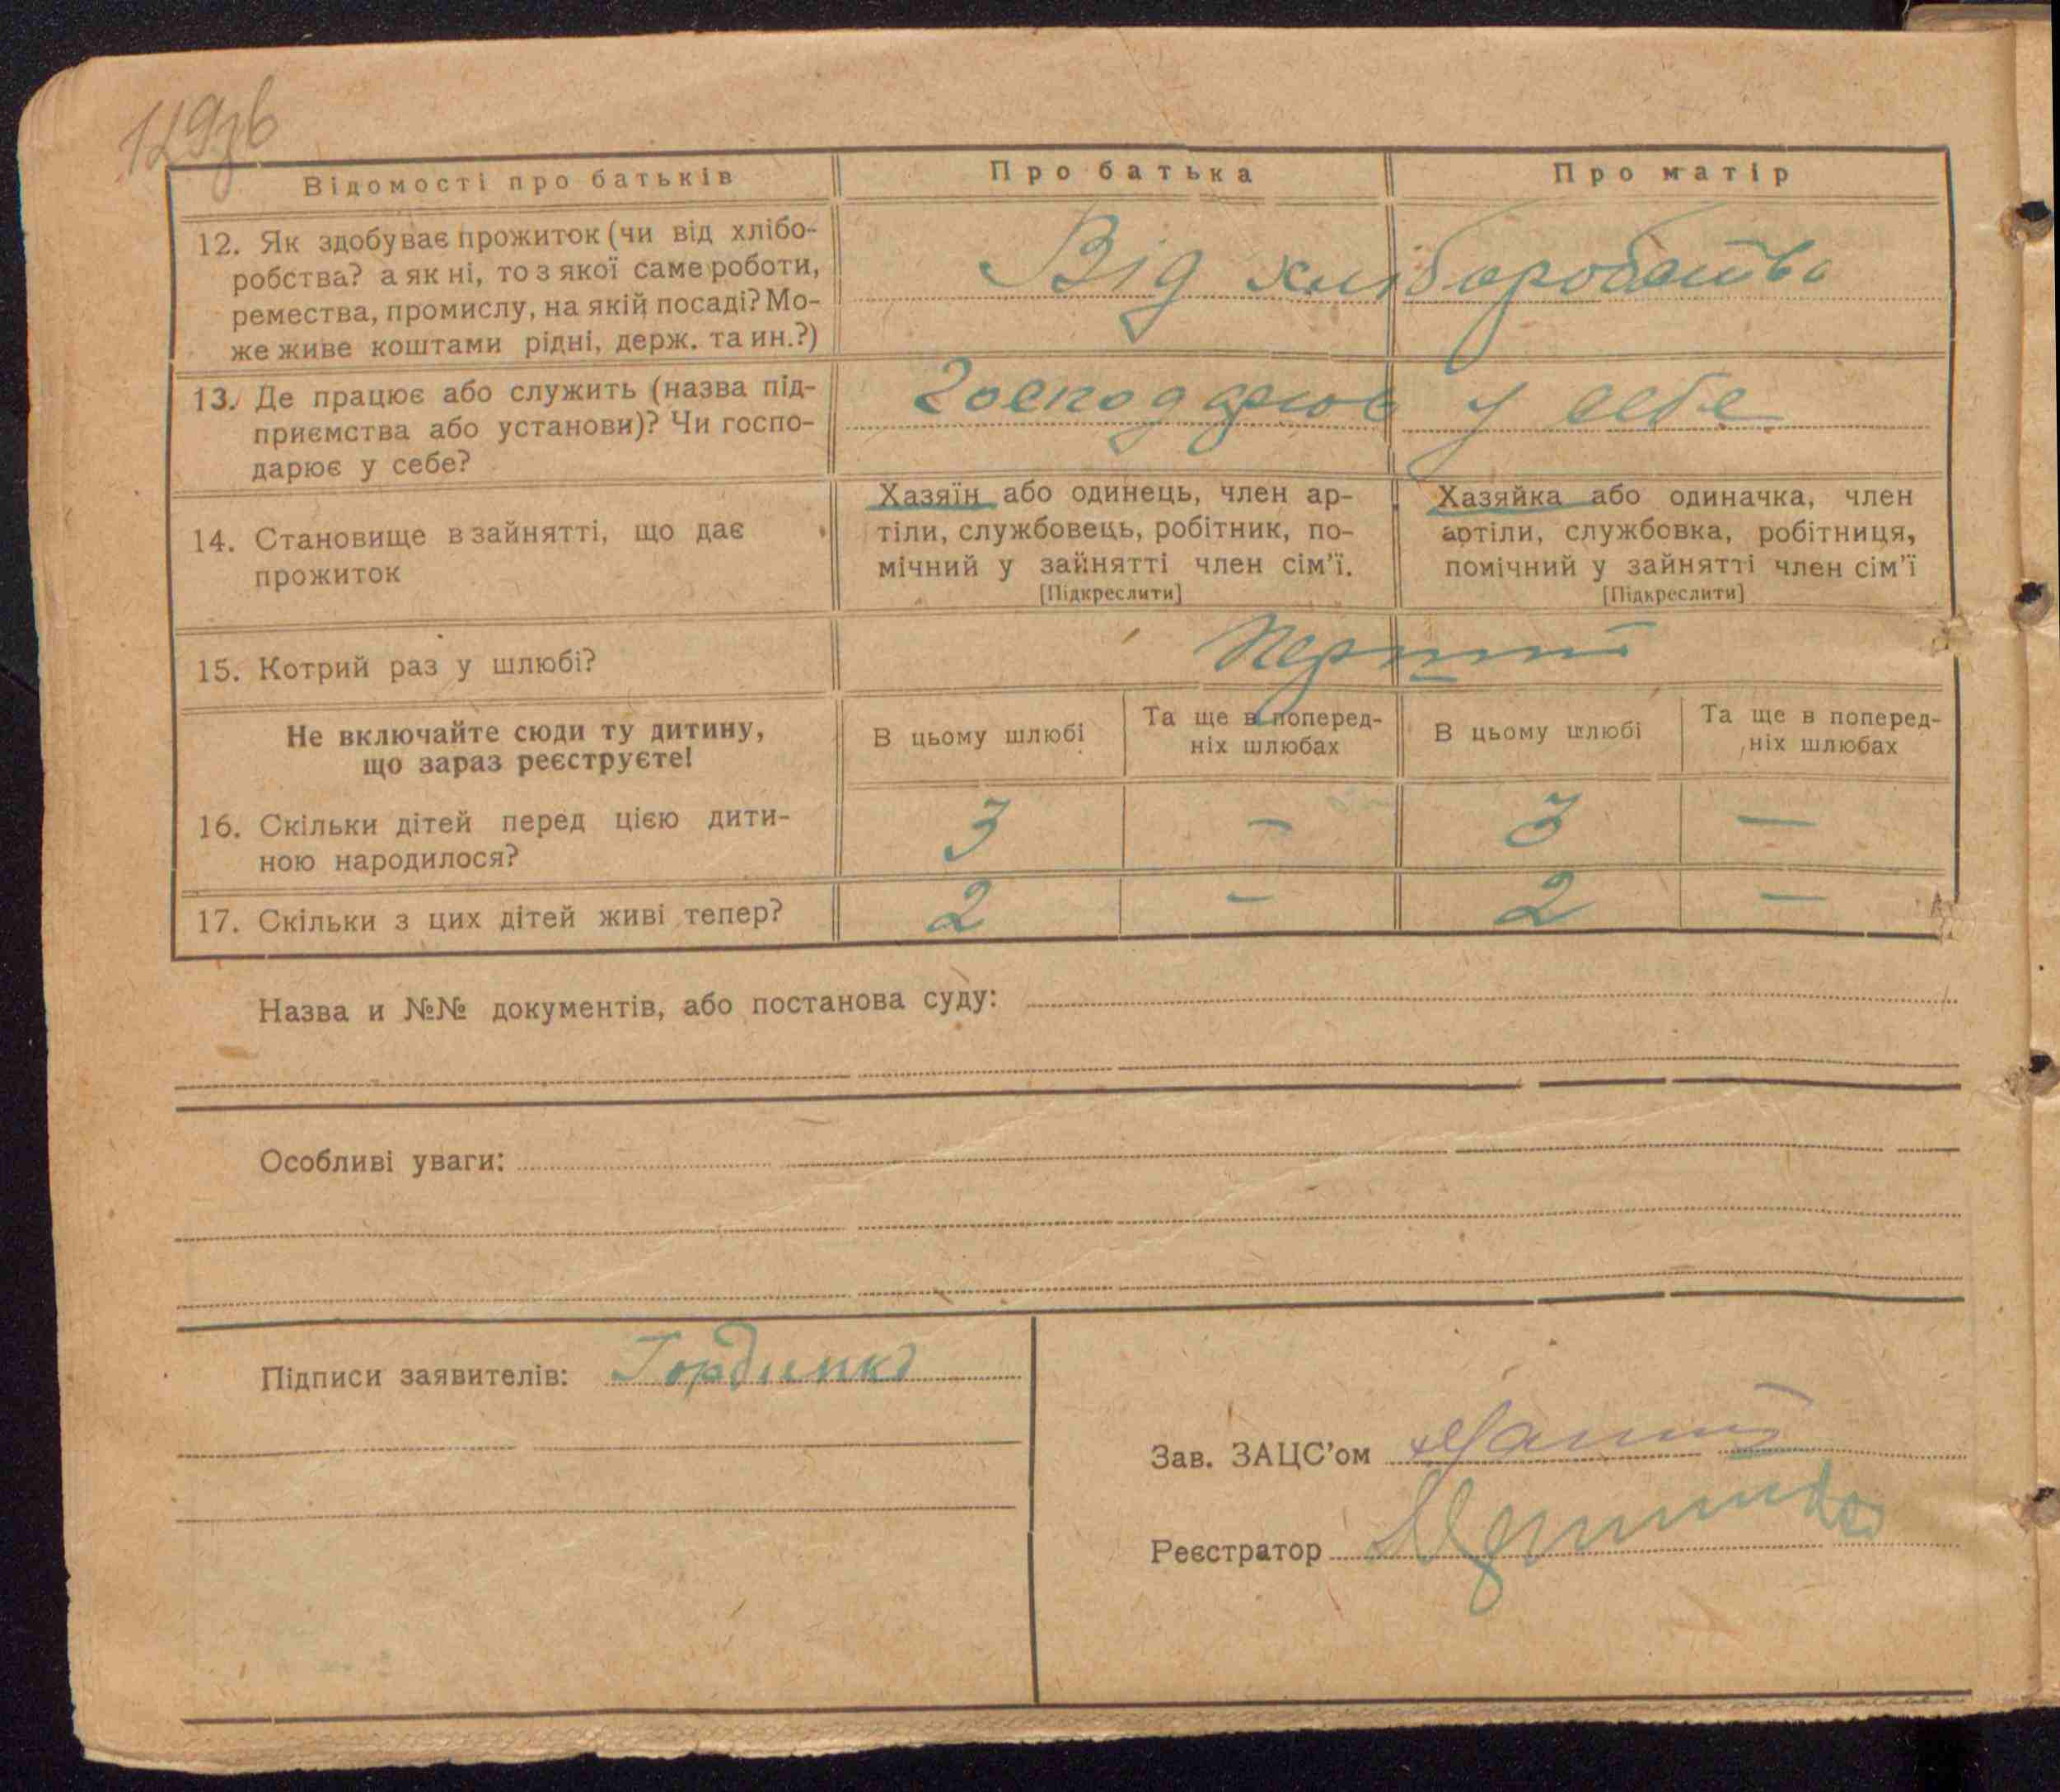 129зв
Відомості про батьків
Про батька
Про матір
12. Як здобуває прожиток (чи від хлібо-
робства? а як ні, то з якої саме роботи,
ремества, промислу, на якій посаді? Мо-
же живе коштами рідні, держ. та ин.?)
Від хліборобства
13. Де працює або служить (назва під-
приємства або установи)? Чи госпо-
дарює у себе?
Господарює у себе
14. Становище в зайнятті, що дає
прожиток
Хазяїн або одинець, член ар-
тіли, службовець, робітник, по-
мічний у зайнятті член сім'ї.
[Підкреслити]
Хазяйка або одиначка, член
артіли, службовка, робітниця,
помічний у зайнятті член сім'ї
[Підкреслити]
15. Котрий раз у шлюбі?
Перший
Не включайте сюди ту дитину,
що зараз реєструєте!
В цьому шлюбі
Та ще в поперед-
ніх шлюбах
В цьому шлюбі
Та ще в поперед-
ніх шлюбах
16. Скільки дітей перед цією дити-
ною народилося?
3 — 3 —
17. Скільки з цих дітей живі тепер?
2 — 2 —
Назва и №№ документів, або постанова суду:
Особливі уваги:
Підписи заявителів:
Зав. ЗАЦС'ом
Реєстратор